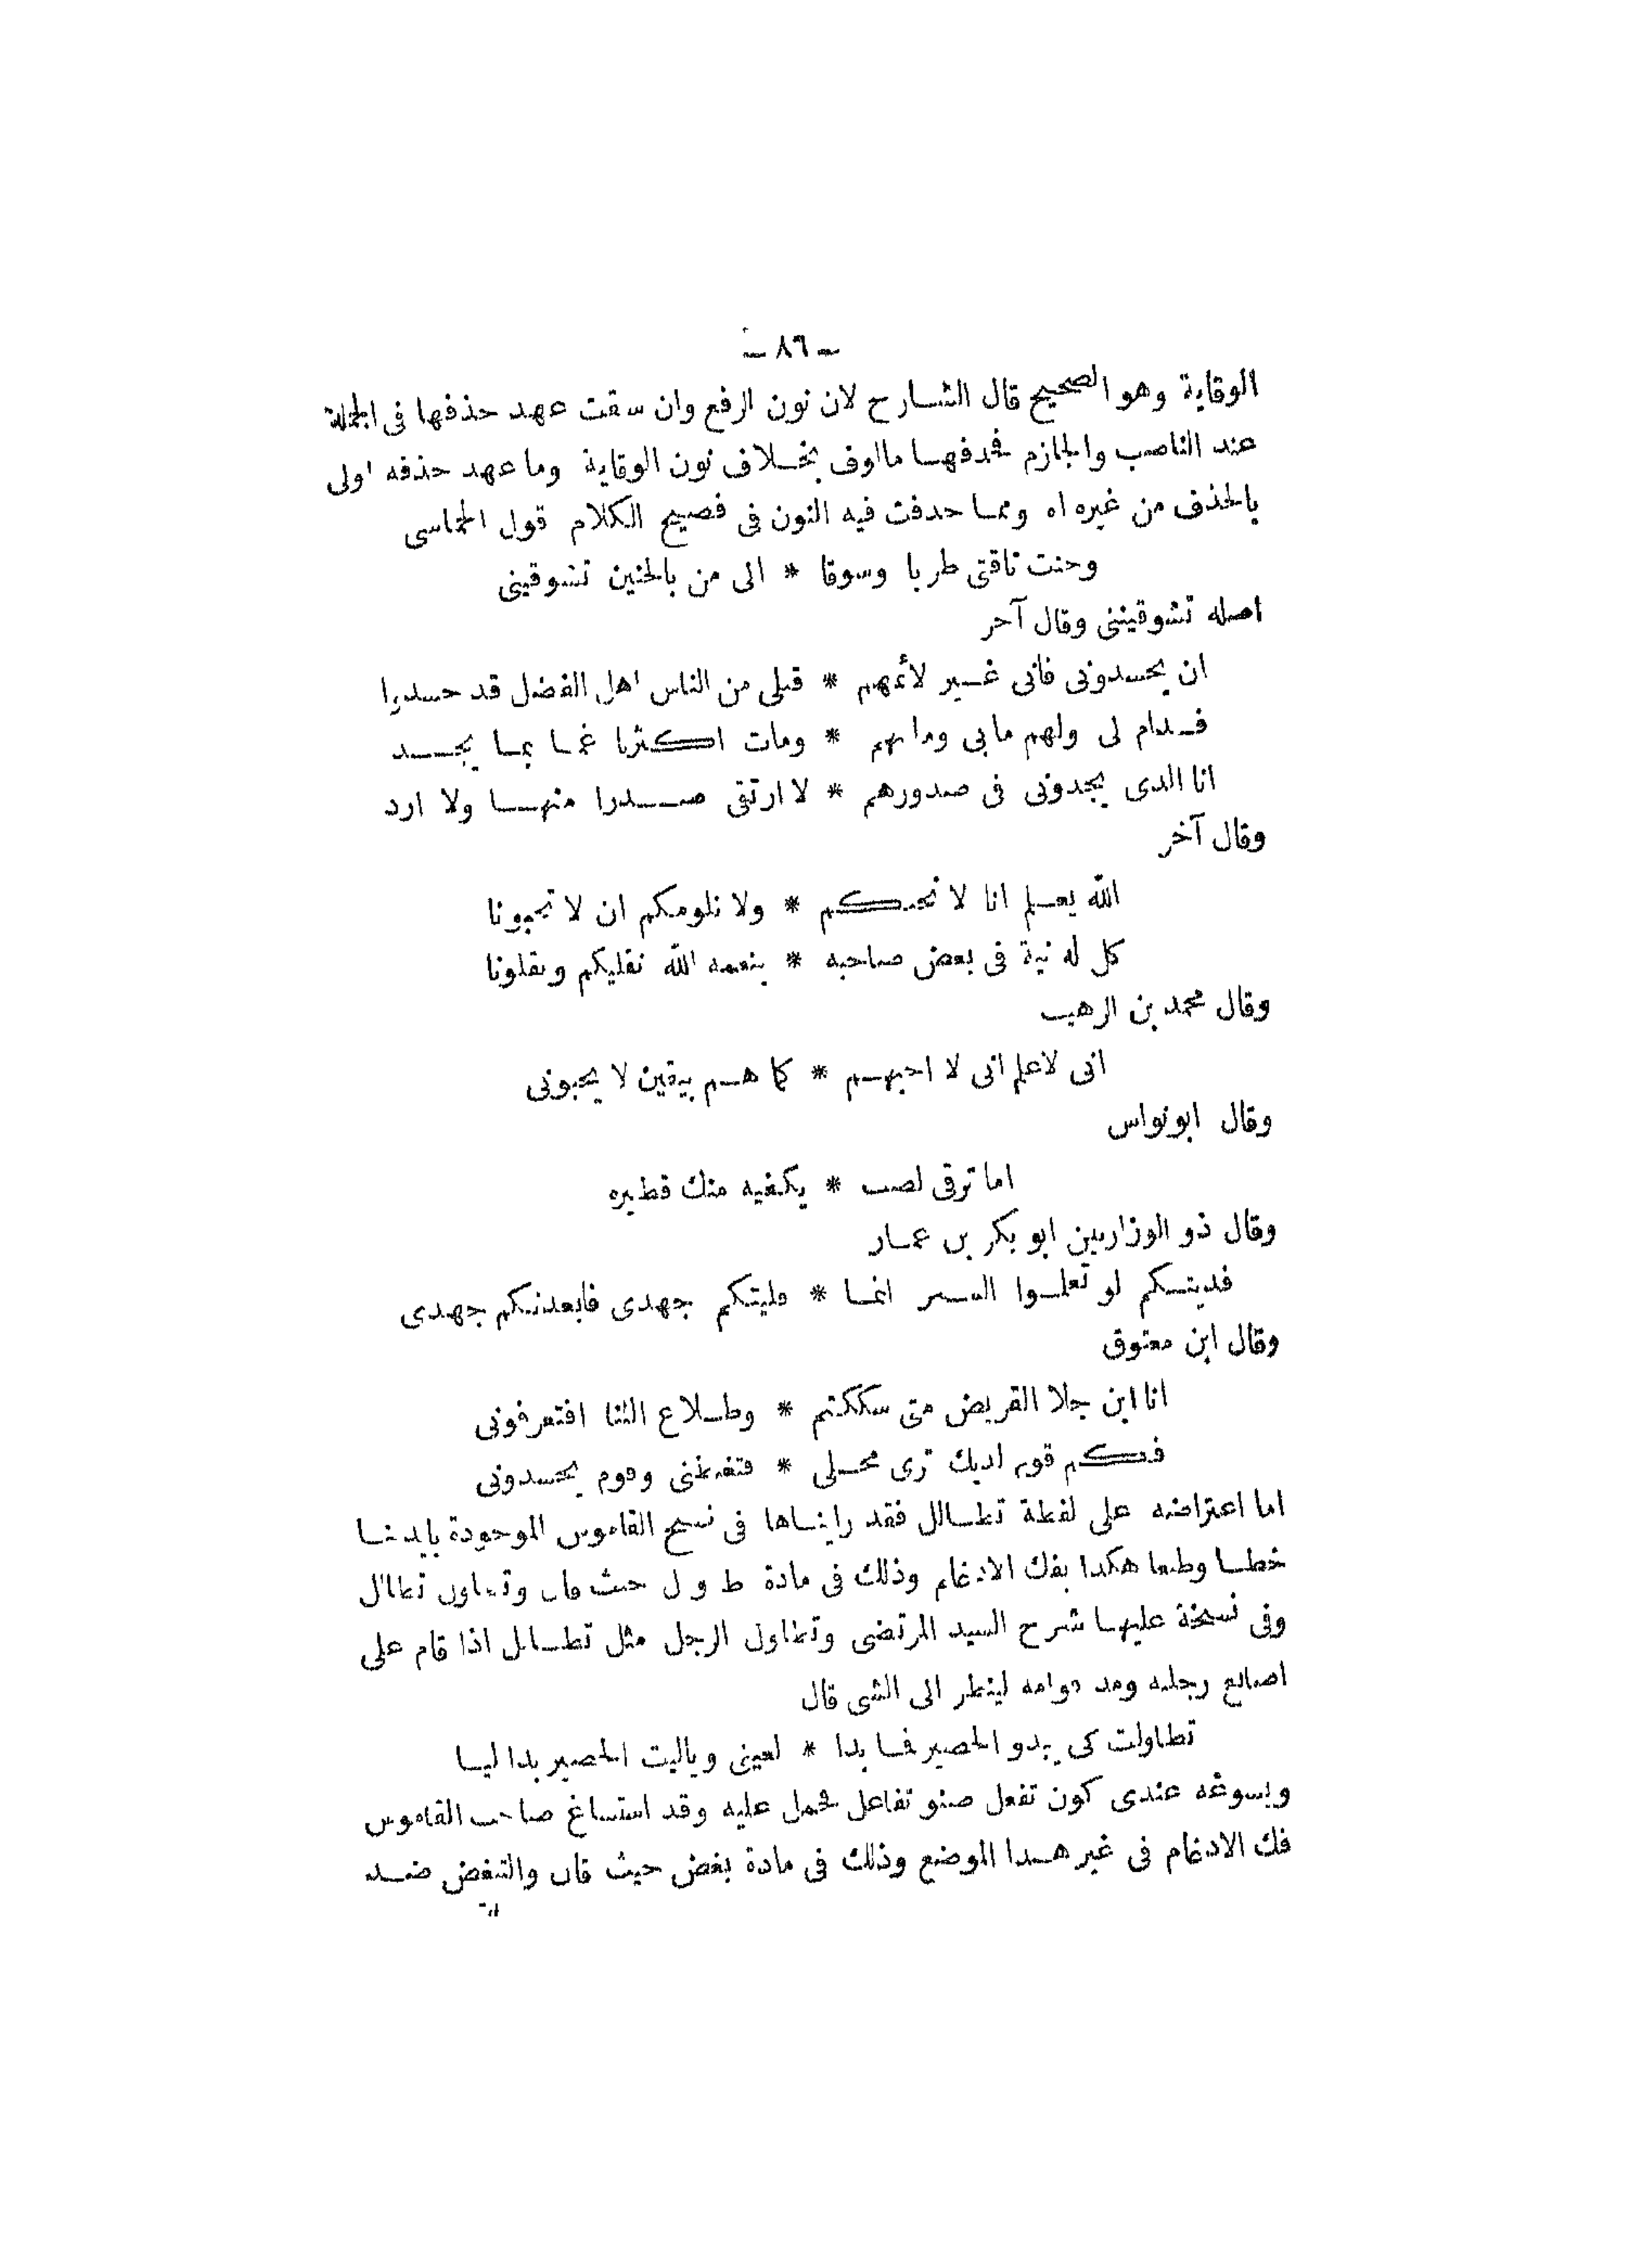 ـ ٨٦ ـ
الوقاية وهو الصحيح قال الشارح لان نون الرفع وان سقت عهد حذفها فى الجملة
عند الناصب والجازم فحدفها مالوف بخلاف نون الوقاية وما عهد حذفه اولى
بالحذف من غيره اه ومما حدفت فيه النون فى فصيح الكلام قول الحماسى
وحنت ناقتى طربا وسوقا * الى من بالحنين تشوقينى
اصله تشوقيننى وقال آحر
ان يحسدونى فانى غير لأئمهم * قبلى من الناس اهل الفضل قد حسدوا
فدام لى ولهم مابى ومابهم * ومات اكثرنا غما بما يجد
انا الدى يجدونى فى صدورهم * لا ارتقى صدرا منها ولا ارد
وقال آخر
الله يعلم انا لا نحبكم * ولا نلومكم ان لا تحبونا
كل له نية فى بعض صاحبه * بنعمه الله نقليكم وتقلونا
وقال محمد بن الرهيب
انى لاعلم انى لا احبهم * كما هم بيقين لا يحبونى
وقال ابونواس
اما ترقى لصب * يكفيه منك قطيره
وقال ذو الوزارتين ابو بكر بن عمار
فديتكم لو تعلموا السر انما * جهدى فابعدتكم جهدى
وقال ابن معتوق
انا ابن جلا القريض متى سككتم * وطلاع الثنا افتعرفونى
فكم قوم لديك ترى محلى * فتغبطنى وقوم يحسدونى
اما اعتراضه على لفظة تطالل فقد رايناها فى نسح القاموس الموحودة بايدينا
خطا وطبعا هكدا بفك الادغام وذلك فى مادة ط و ل حيث قال وتطاول تطالل
وفى نسخة عليها شرح السيد المرتضى وتطاول الرجل مثل تطالل اذا قام على
اصابع رجليه ومد قوامه لينظر الى الشى قال
تطاولت كى يبدو الحصير فما بدا * لعينى وياليت الحصير بدا ليا
ويسوغه عندى كون تفعل صنو تفاعل فحمل عليه وقد استساغ صاحب القاموس
فك الادغام فى غير هدا الموضع وذلك فى مادة بغض حيث قال والتبغض ضد